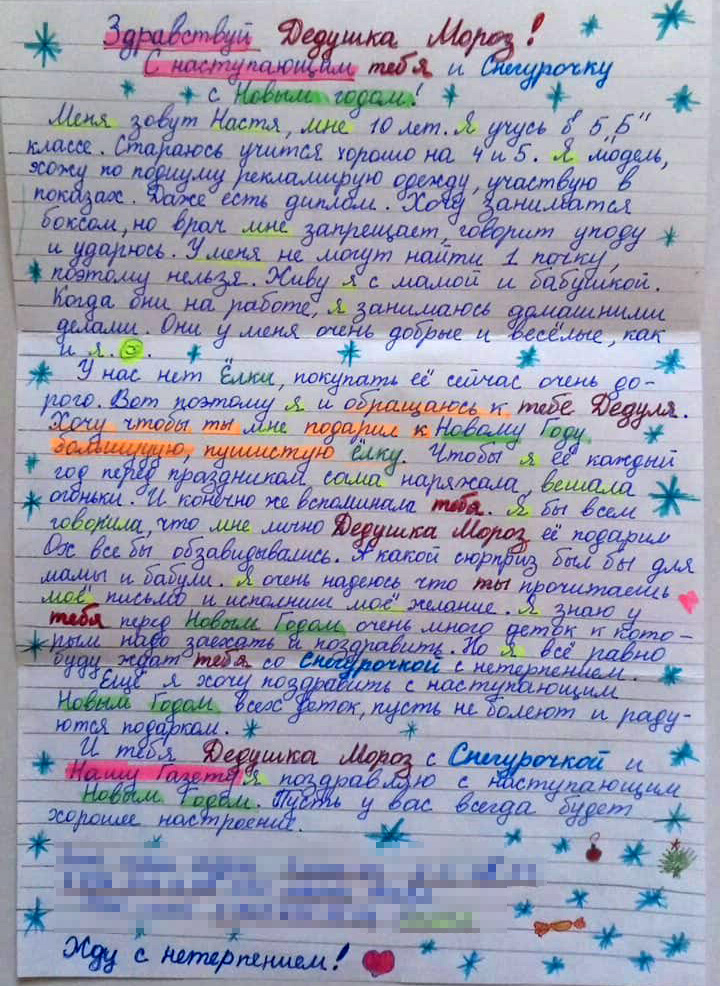 Здравствуй Дедушка Мороз!
С наступающим тебя и Снегурочку
с Новым годом!
Меня зовут Настя, мне 10 лет. Я учусь в 5 „Б"
классе. Стараюсь учится хорошо на 4 и 5. Я модель,
хожу по подиуму рекламирую одежду, участвую в
показах. Даже есть диплом. Хочу заниматся
боксом, но врач мне запрещает, говорит упаду
и ударюсь. У меня не могут найти 1 почку,
поэтому нельзя. Живу я с мамой и бабушкой.
Когда они на работе, я занимаюсь домашними
делами. Они у меня очень добрые и весёлые, как
и я.
У нас нет Ёлки, покупать её сейчас очень до-
рого. Вот поэтому я и обращаюсь к тебе Дедуля.
Хочу чтобы ты мне подарил к Новому Году
большущую пушистую ёлку. Чтобы я её каждый
год перед праздником сама наряжала, вешала
огоньки. И конечно же вспоминала тебя. Я бы всем
говорила, что мне лично Дедушка Мороз её подарил
Ох все бы обзавидывались. А какой сюрприз был бы для
мамы и бабули. Я очень надеюсь что ты прочитаешь
моё письмо и исполниш моё желание. Я знаю у
тебя перед Новым Годом очень много деток к кото-
рым надо заехать и поздравить. Но я всё равно
буду ждат тебя со Снегурочкой с нетерпением.
Ещё я хочу поздравить с наступающим
Новым Годом всех деток, пусть не болеют и раду-
ются подаркам.
И тебя Дедушка Мороз с Снегурочкой и
Нашу Газету я поздравляю с наступающим
Новым Годом. Пусть у вас всегда будет
хорошее настроение.
Жду с нетерпением!